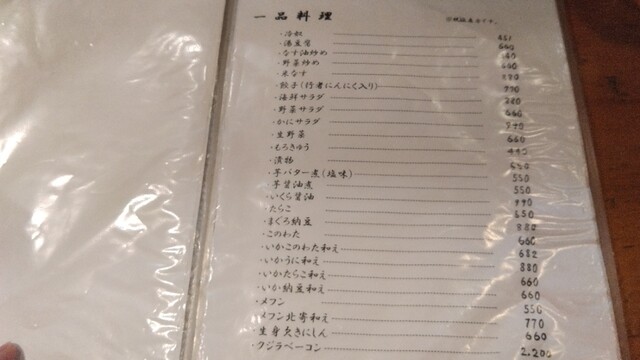 一品料理
・冷奴
・湯豆腐 660
・なす油炒め
・野菜炒め
・米なす
・餃子(行者にんにく入り)
・海鮮サラダ
・野菜サラダ
・かにサラダ
・生野菜 660
・もろきゅう
・漬物
・芋バター煮(塩味) 550
芋醤油煮 550
・いくら醤油
・たらこ 550
・まぐろ納豆 880
・このわた 660
・いかこのわた和え 682
・いかうに和え 880
・いかたらこ和え 660
・いか納豆和え 660
・メフン 550
メフン北寄和え 770
・生身欠きにしん 660
・クジラベーコン 2.200